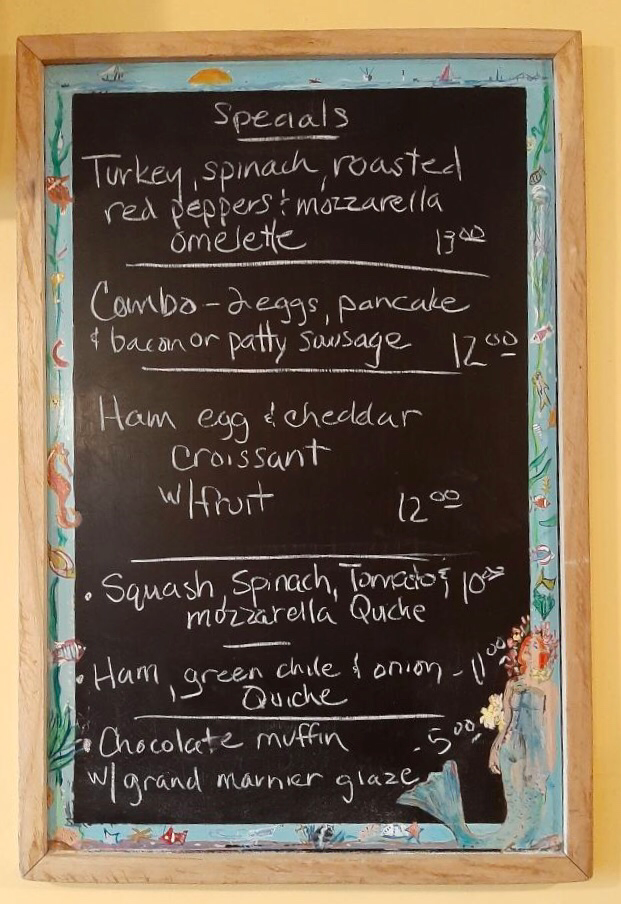 Specials
Turkey, spinach, roasted
red peppers & mozzarella
omelette 13.00
Combo - 2 eggs, pancake
& bacon or patty sausage 12.00
Ham egg & cheddar
croissant
w/fruit 12.00
• Squash, Spinach, Tomato & 10.00
mozzarella Quche
• Ham, green chile & onion - 11.00
Quiche
• Chocolate muffin - 5.00
w/ grand marnier glaze